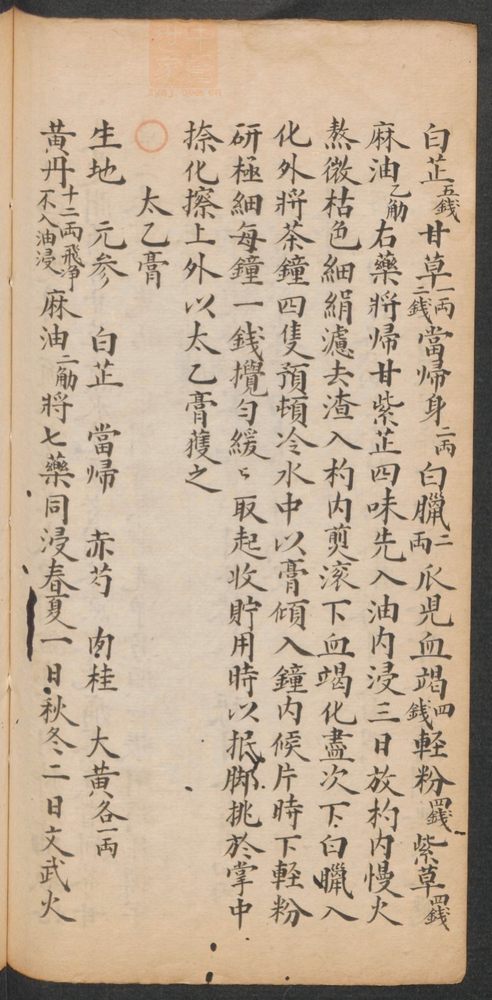 白芷五錢甘草一兩二錢當歸身二兩白臘二兩爪児血竭四錢軽粉四錢紫草四錢
麻油乙觔右藥將帰甘紫芷四味先入油内浸三日放杓内慢火
熬微枯色細絹濾去渣入杓内煎滚下血竭化盡次下白臘入
化外將茶鐘四隻預頓冷水中以膏傾入鐘内候片時下軽粉
研極細每鐘一錢攪勻緩〻取起收貯用時以抿脚挑於掌中
捺化搽上外以太乙膏蓋之
○太乙膏
生地 元参 白芷 當帰 赤芍 肉桂 大黃各一兩
黃丹十二兩飛净不入油浸麻油二觔將七藥同浸春夏一日秋冬二日文武火